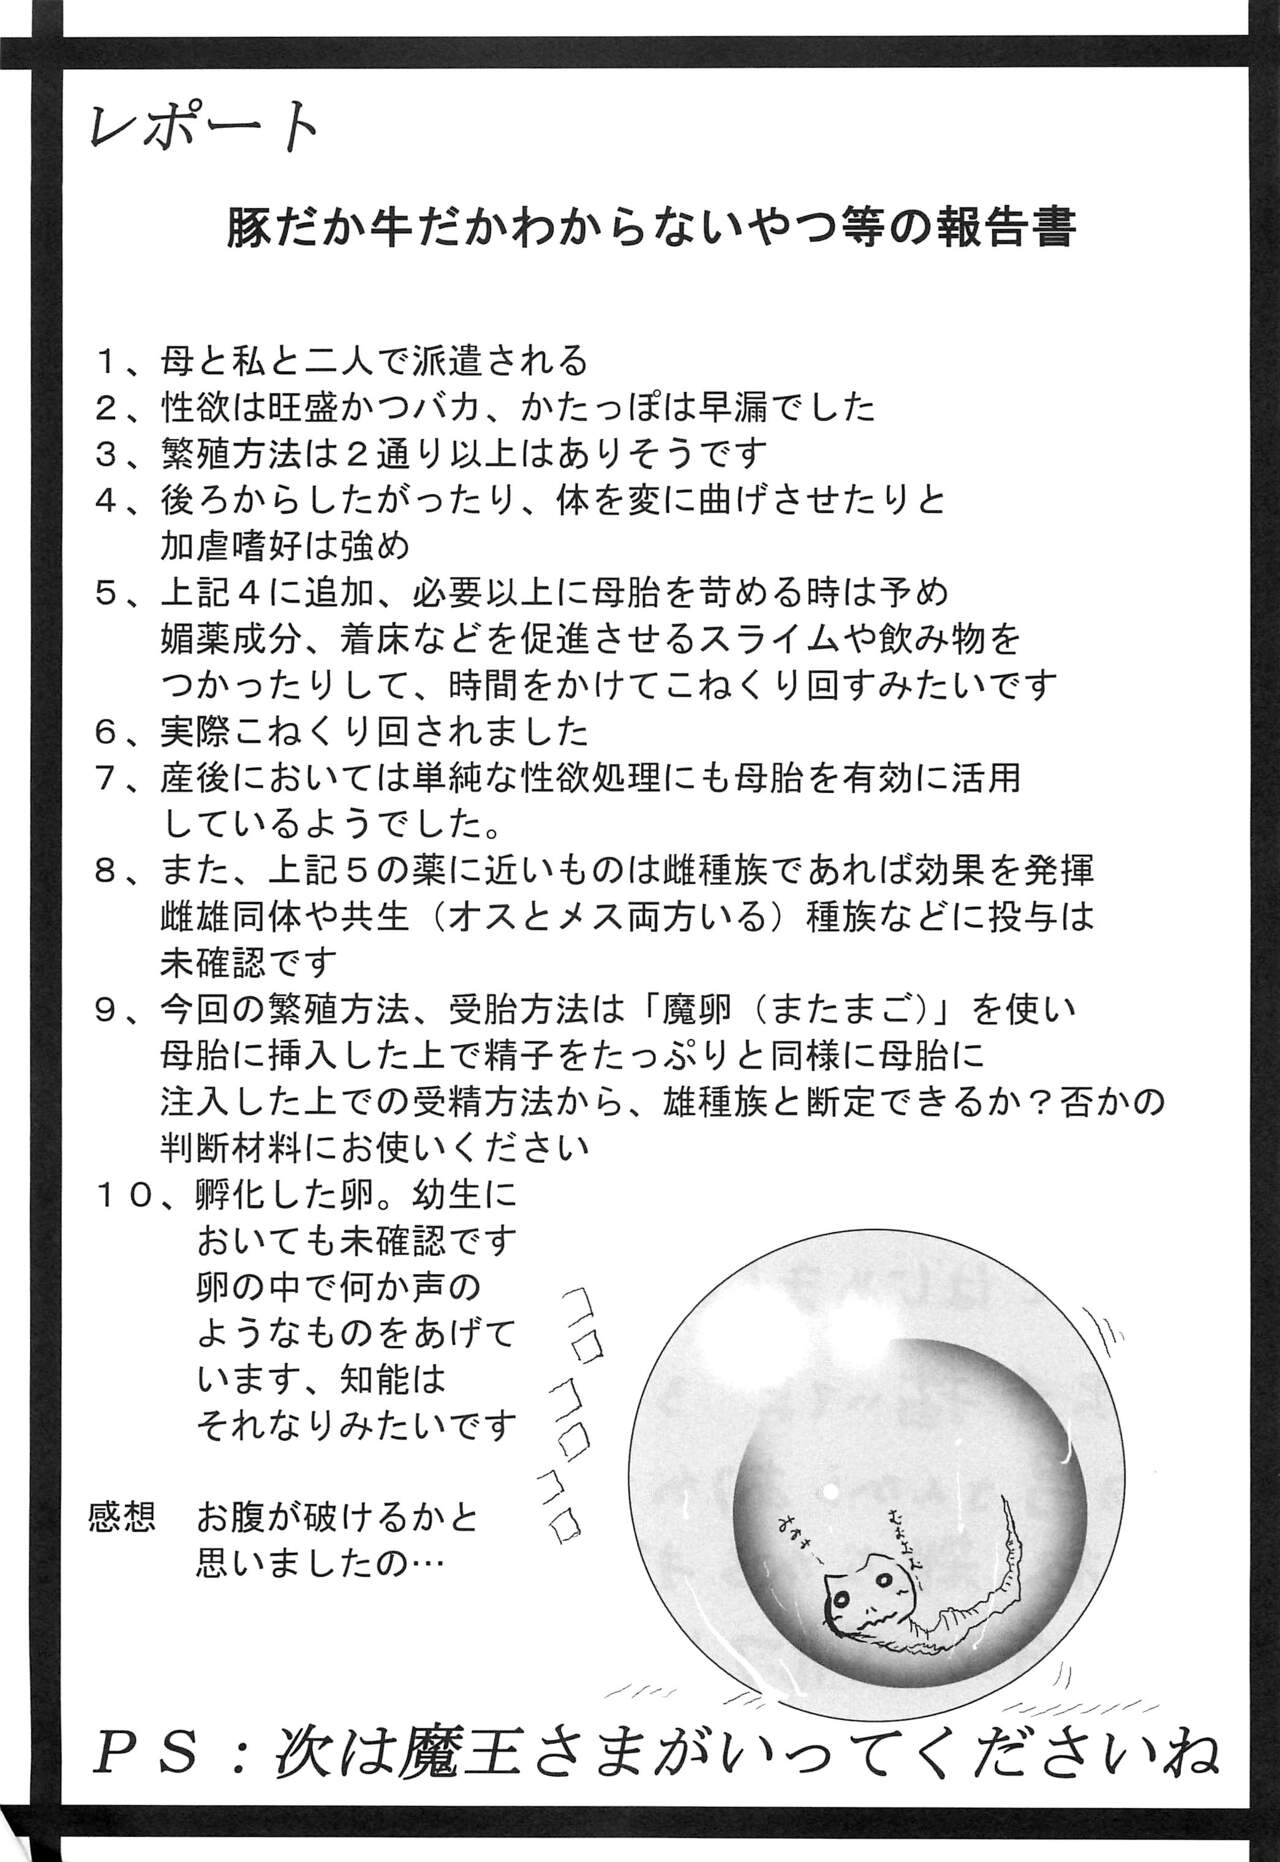 レポート
豚だか牛だかわからないやつ等の報告書
１、母と私と二人で派遣される
２、性欲は旺盛かつバカ、かたっぽは早漏でした
３、繁殖方法は２通り以上はありそうです
４、後ろからしたがったり、体を変に曲げさせたりと
加虐嗜好は強め
５、上記４に追加、必要以上に母胎を苛める時は予め
媚薬成分、着床などを促進させるスライムや飲み物を
つかったりして、時間をかけてこねくり回すみたいです
６、実際こねくり回されました
７、産後においては単純な性欲処理にも母胎を有効に活用
しているようでした。
８、また、上記５の薬に近いものは雌種族であれば効果を発揮
雌雄同体や共生（オスとメス両方いる）種族などに投与は
未確認です
９、今回の繁殖方法、受胎方法は「魔卵（またまご）」を使い
母胎に挿入した上で精子をたっぷりと同様に母胎に
注入した上での受精方法から、雄種族と断定できるか？否かの
判断材料にお使いください
１０、孵化した卵。幼生に
おいても未確認です
卵の中で何か声の
ようなものをあげて
います、知能は
それなりみたいです
コロコロコロ
むぉぉむぉー
感想　お腹が破けるかと
思いましたの…
ＰＳ：次は魔王さまがいってくださいね